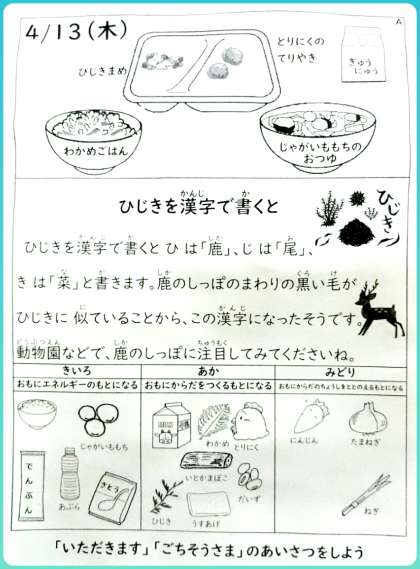 A
4/13(木)
ひじきまめ
とりにくの
てりやき
ぎゅう
にゅう
わかめごはん
じゃがいももちの
おつゆ
ひじきを漢字で書くと
ひじき
ひじきを漢字で書くと ひ は「鹿」、じ は「尾」、
き は「菜」と書きます。鹿のしっぽのまわりの黒い毛が
ひじきに 似ていることから、この漢字になったそうです。
動物園などで、鹿のしっぽに注目してみてくださいね。
きいろ
おもにエネルギーのもとになる
じゃがいももち
でんぷん
あぶら
さとう
あか
おもにからだをつくるもとになる
わかめ
とりにく
いとかまぼこ
だいず
ひじき
うすあげ
みどり
おもにからだのちょうしをととのえるもとになる
にんじん
たまねぎ
ねぎ
「いただきます」「ごちそうさま」のあいさつをしよう